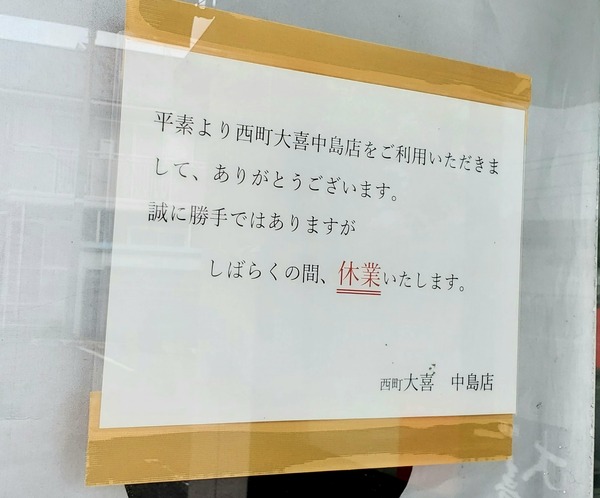 平素より西町大喜中島店をご利用いただきま
して、ありがとうございます。
誠に勝手ではありますが
しばらくの間、休業いたします。
西町大喜　中島店